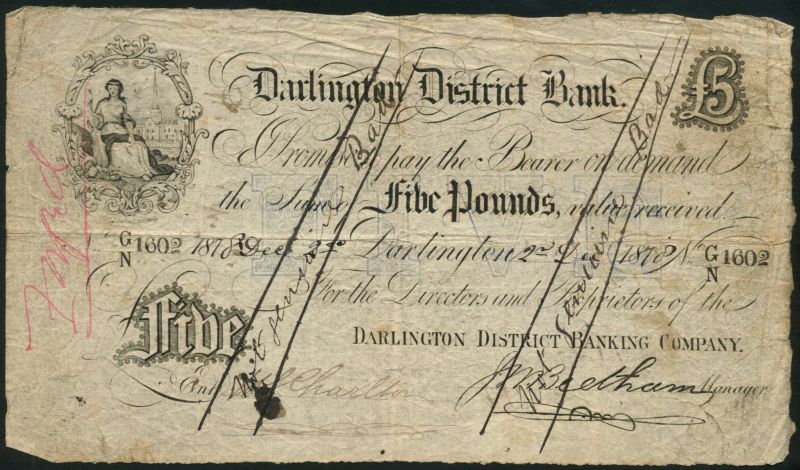 Darlington District Bank. £5
I Promise to pay the Bearer on demand
the Sum of Five Pounds, value received
No. G/N 1602 1878 Decr 2nd Darlington 2nd Decr 1878 No. G/N 1602
For the Directors and Proprietors of the
DARLINGTON DISTRICT BANKING COMPANY.
Five
Entd Charlton
J W Beetham Manager.
FIVE
Bad
Not genuine
Bad
Not genuine